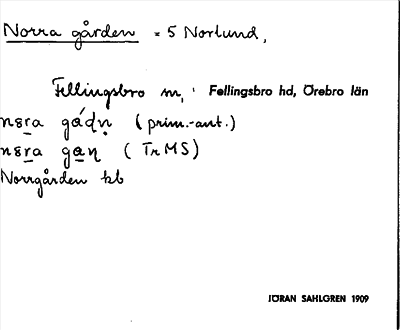 Norra gården = 5 Norlund,
Fellingsbro sn, Fellingsbro hd, Örebro län
nɷra gádn̥ (prim.-ant.)
nɷra gan (Tr MS)
Norrgården kb
JÖRAN SAHLGREN 1909